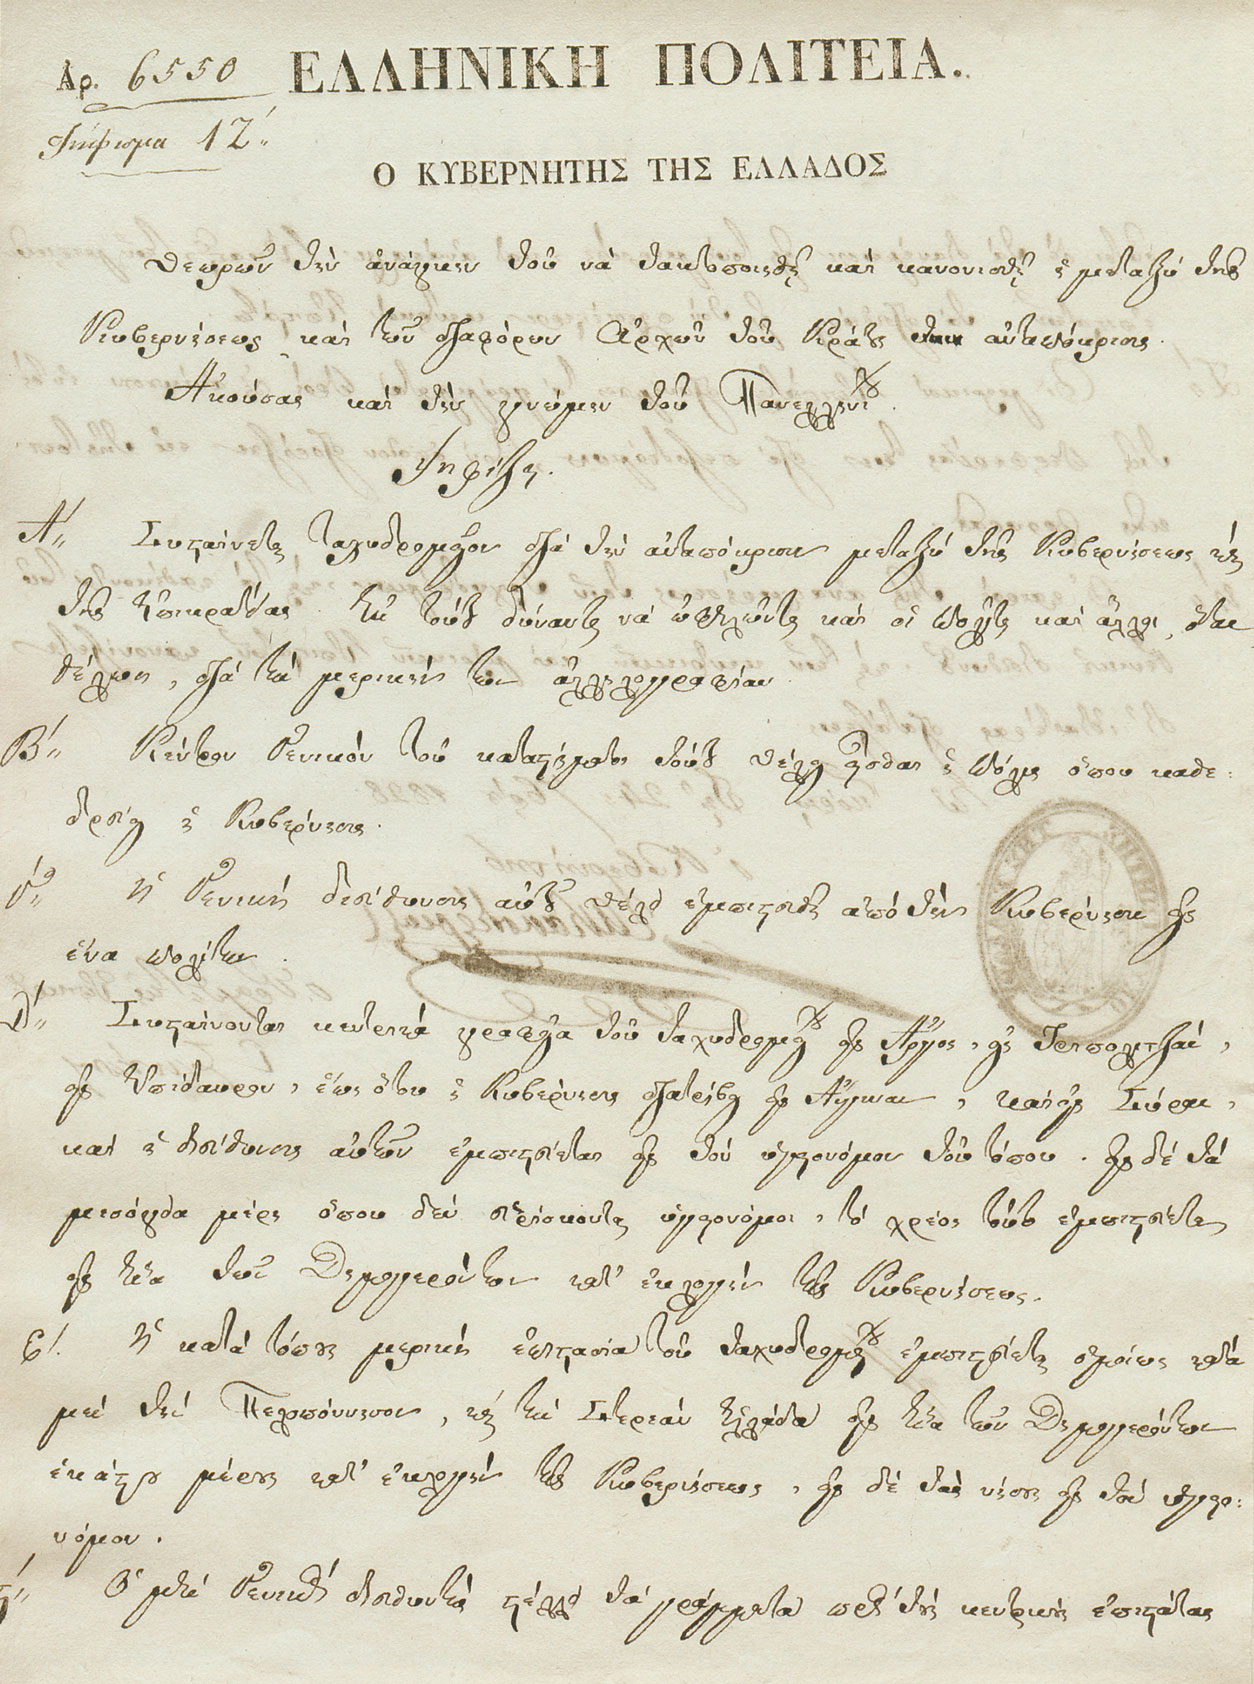 Ἀρ. 6550 ΕΛΛΗΝΙΚΗ ΠΟΛΙΤΕΙΑ.
Ψήφισμα 12
Ο ΚΥΒΕΡΝΗΤΗΣ ΤΗΣ ΕΛΛΑΔΟΣ
Θεωρῶν τὴν ἀνάγκην τοῦ νὰ τακτοποιηθῇ καὶ κανονισθῇ ἡ μεταξὺ τῆς
Κυβερνήσεως καὶ τῶν διαφόρων Ἀρχῶν τοῦ Κράτους ἀνταπόκρισις.
Ἀκούσας καὶ τὴν γνώμην τοῦ Πανελληνίου.
Ψηφίζει.
Α΄ Συσταίνεται ταχυδρομεῖον διὰ τὴν ἀνταπόκρισιν μεταξὺ τῆς Κυβερνήσεως καὶ
τῆς Ἐπικρατείας. Ἐκ τούτου δύνανται νὰ ὠφελῶνται καὶ οἱ πολῖται καὶ ἄλλοι, ὅταν
θέλωσι, διὰ τὴν μερικήν των ἀλληλογραφίαν.
Β΄ Κέντρον Γενικὸν τοῦ καταστήματος τούτου θέλει εἶσθαι ἡ πόλις ὅπου καθε:
δρεύει ἡ Κυβέρνησις.
Γ΄ Ἡ Γενικὴ διεύθυνσις αὐτοῦ θέλει ἐμπιστευθῆ ἀπὸ τὴν Κυβέρνησιν εἰς
ἕνα πολίτην.
Δ΄ Συσταίνονται κεντρικὰ γραφεῖα τοῦ ταχυδρομείου εἰς Ἄργος, εἰς Τριπολιτζὰν,
εἰς Ἐπίδαυρον, ἕως ὅτου ἡ Κυβέρνησις διατρίβει εἰς Αἴγιναν, καὶ εἰς Σύραν,
καὶ ἡ διεύθυνσις αὐτῶν ἐμπιστεύεται εἰς τὸν ὑγειονόμον τοῦ τόπου. εἰς δὲ τὰ
μεσόγεια μέρη ὅπου δὲν εὑρίσκονται ὑγειονόμοι, τὸ χρέος τοῦτο ἐμπιστεύεται
εἰς ἕνα τῶν Δημογερόντων κατ' ἐκλογὴν τῆς Κυβερνήσεως.
Ε΄. Ἡ κατὰ τόπους μερικὴ ἐπιστασία τοῦ ταχυδρομείου ἐμπιστεύεται ὁμοίως κατὰ
μὲν τὴν Πελοπόννησον, καὶ τὴν Στερεὰν Ἑλλάδα εἰς ἕνα τῶν Δημογερόντων
ἑκάστου μέρους κατ' ἐκλογὴν τῆς Κυβερνήσεως, εἰς δὲ τὰς νήσους εἰς τὸν ὑγειο:
νόμον.
Ὁ μὲν Γενικὸς διευθυντὴς στέλλει τὰ γράμματα πρὸς τοὺς κεντρικοὺς ἐπιστάτας